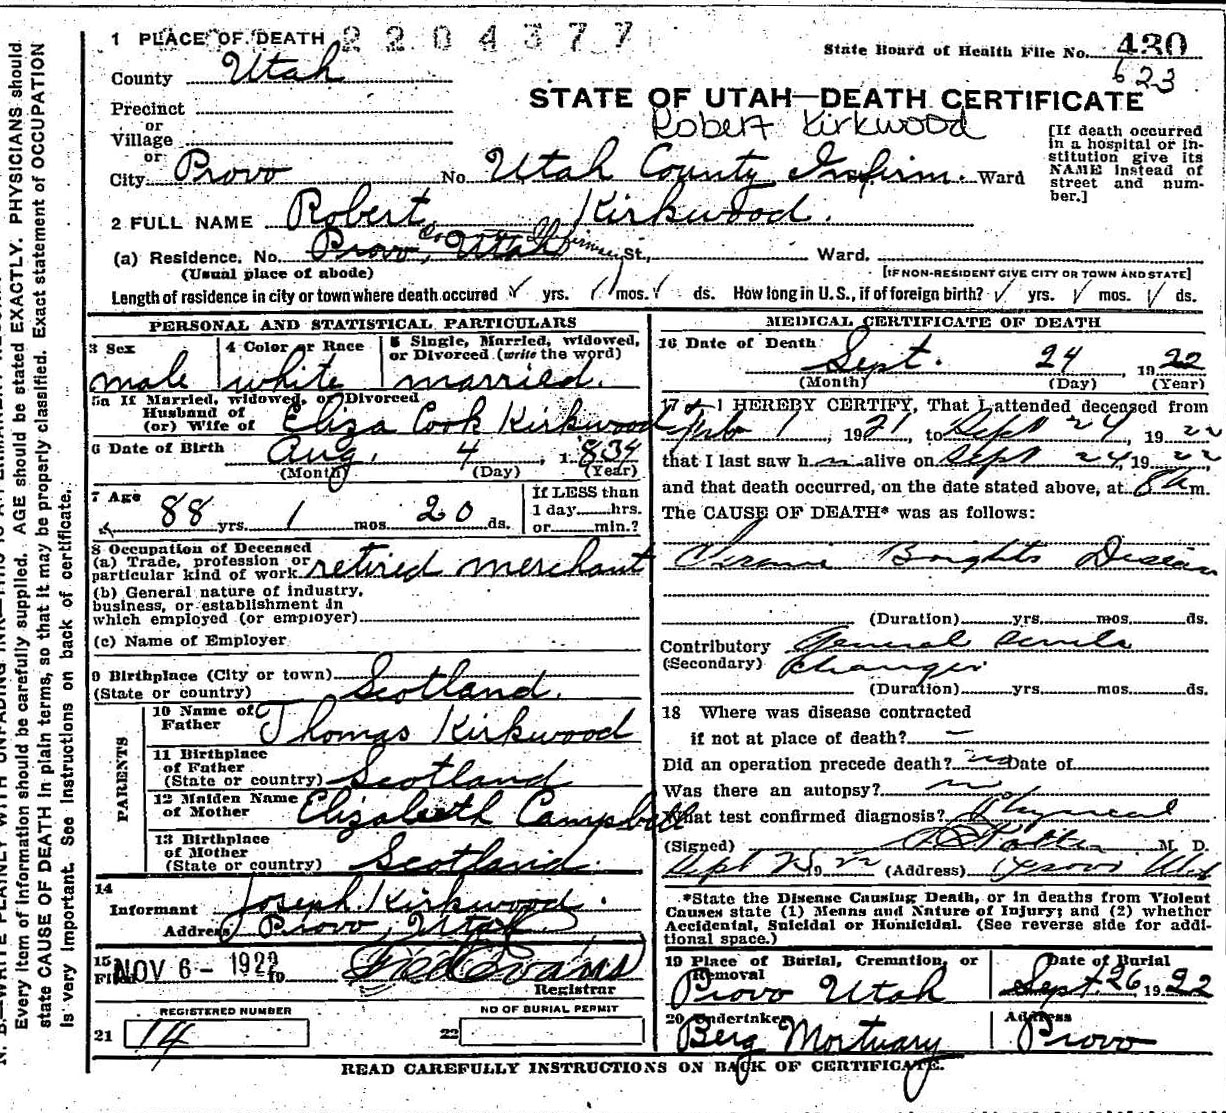 1 PLACE OF DEATH 2204377
State Board of Health File No. 430
County Utah
623
STATE OF UTAH—DEATH CERTIFICATE
Precinct
or
Robert Kirkwood
Village
or
City Provo No Utah County Infirm. Ward
[If death occurred
in a hospital or in-
stitution give its
NAME instead of
street and num-
ber.]
2 FULL NAME Robert Kirkwood.
(a) Residence. No. Provo, Utah Co Infirmary St., Ward.
(Usual place of abode)
[IF NON-RESIDENT GIVE CITY OR TOWN AND STATE]
Length of residence in city or town where death occured yrs. mos. ds. How long in U.S., if of foreign birth? yrs. mos. ds.
PERSONAL AND STATISTICAL PARTICULARS
3 Sex male
4 Color or Race white
5 Single, Married, widowed,
or Divorced (write the word)
married.
5a If Married, widowed, or Divorced
Husband of
(or) Wife of Eliza Cook Kirkwood
6 Date of Birth Aug. 4, 1834
(Month) (Day) (Year)
7 Age 88 yrs. 1 mos. 20 ds.
If LESS than
1 day hrs.
or min.?
8 Occupation of Deceased
(a) Trade, profession or
particular kind of work retired merchant
(b) General nature of industry,
business, or establishment in
which employed (or employer)
(c) Name of Employer
9 Birthplace (City or town)
(State or country) Scotland.
PARENTS
10 Name of
Father Thomas Kirkwood
11 Birthplace
of Father
(State or country) Scotland
12 Maiden Name
of Mother Elizabeth Campbell
13 Birthplace
of Mother
(State or country) Scotland.
14
Informant Joseph Kirkwood.
Address Provo, Utah
15
Filed NOV 6 - 1922 Fred Evans
Registrar
REGISTERED NUMBER
21 14
NO OF BURIAL PERMIT
22
MEDICAL CERTIFICATE OF DEATH
16 Date of Death Sept. 24, 1922
(Month) (Day) (Year)
17 I HEREBY CERTIFY, That I attended deceased from
Feb 1, 1921, to Sept 24, 1922
that I last saw h m alive on Sept 24, 1922,
and that death occurred, on the date stated above, at 8 a m.
The CAUSE OF DEATH* was as follows:
Chronic Brights Disease
(Duration) yrs. mos. ds.
Contributory General Senile
(Secondary) Changes
(Duration) yrs. mos. ds.
18 Where was disease contracted
if not at place of death? —
Did an operation precede death? no Date of
Was there an autopsy? no
What test confirmed diagnosis? Physical
(Signed) M. D.
Sept 25 1922 (Address) Provo Utah
*State the Disease Causing Death, or in deaths from Violent
Causes state (1) Means and Nature of Injury; and (2) whether
Accidental, Suicidal or Homicidal. (See reverse side for addi-
tional space.)
19 Place of Burial, Cremation, or
Removal
Provo Utah
Date of Burial
Sept. 26, 1922
20 Undertaker
Berg Mortuary
Address
Provo
READ CAREFULLY INSTRUCTIONS ON BACK OF CERTIFICATE.
Every item of information should be carefully supplied. AGE should be stated EXACTLY. PHYSICIANS should
state CAUSE OF DEATH in plain terms, so that it may be properly classified. Exact statement of OCCUPATION
is very important. See instructions on back of certificate.